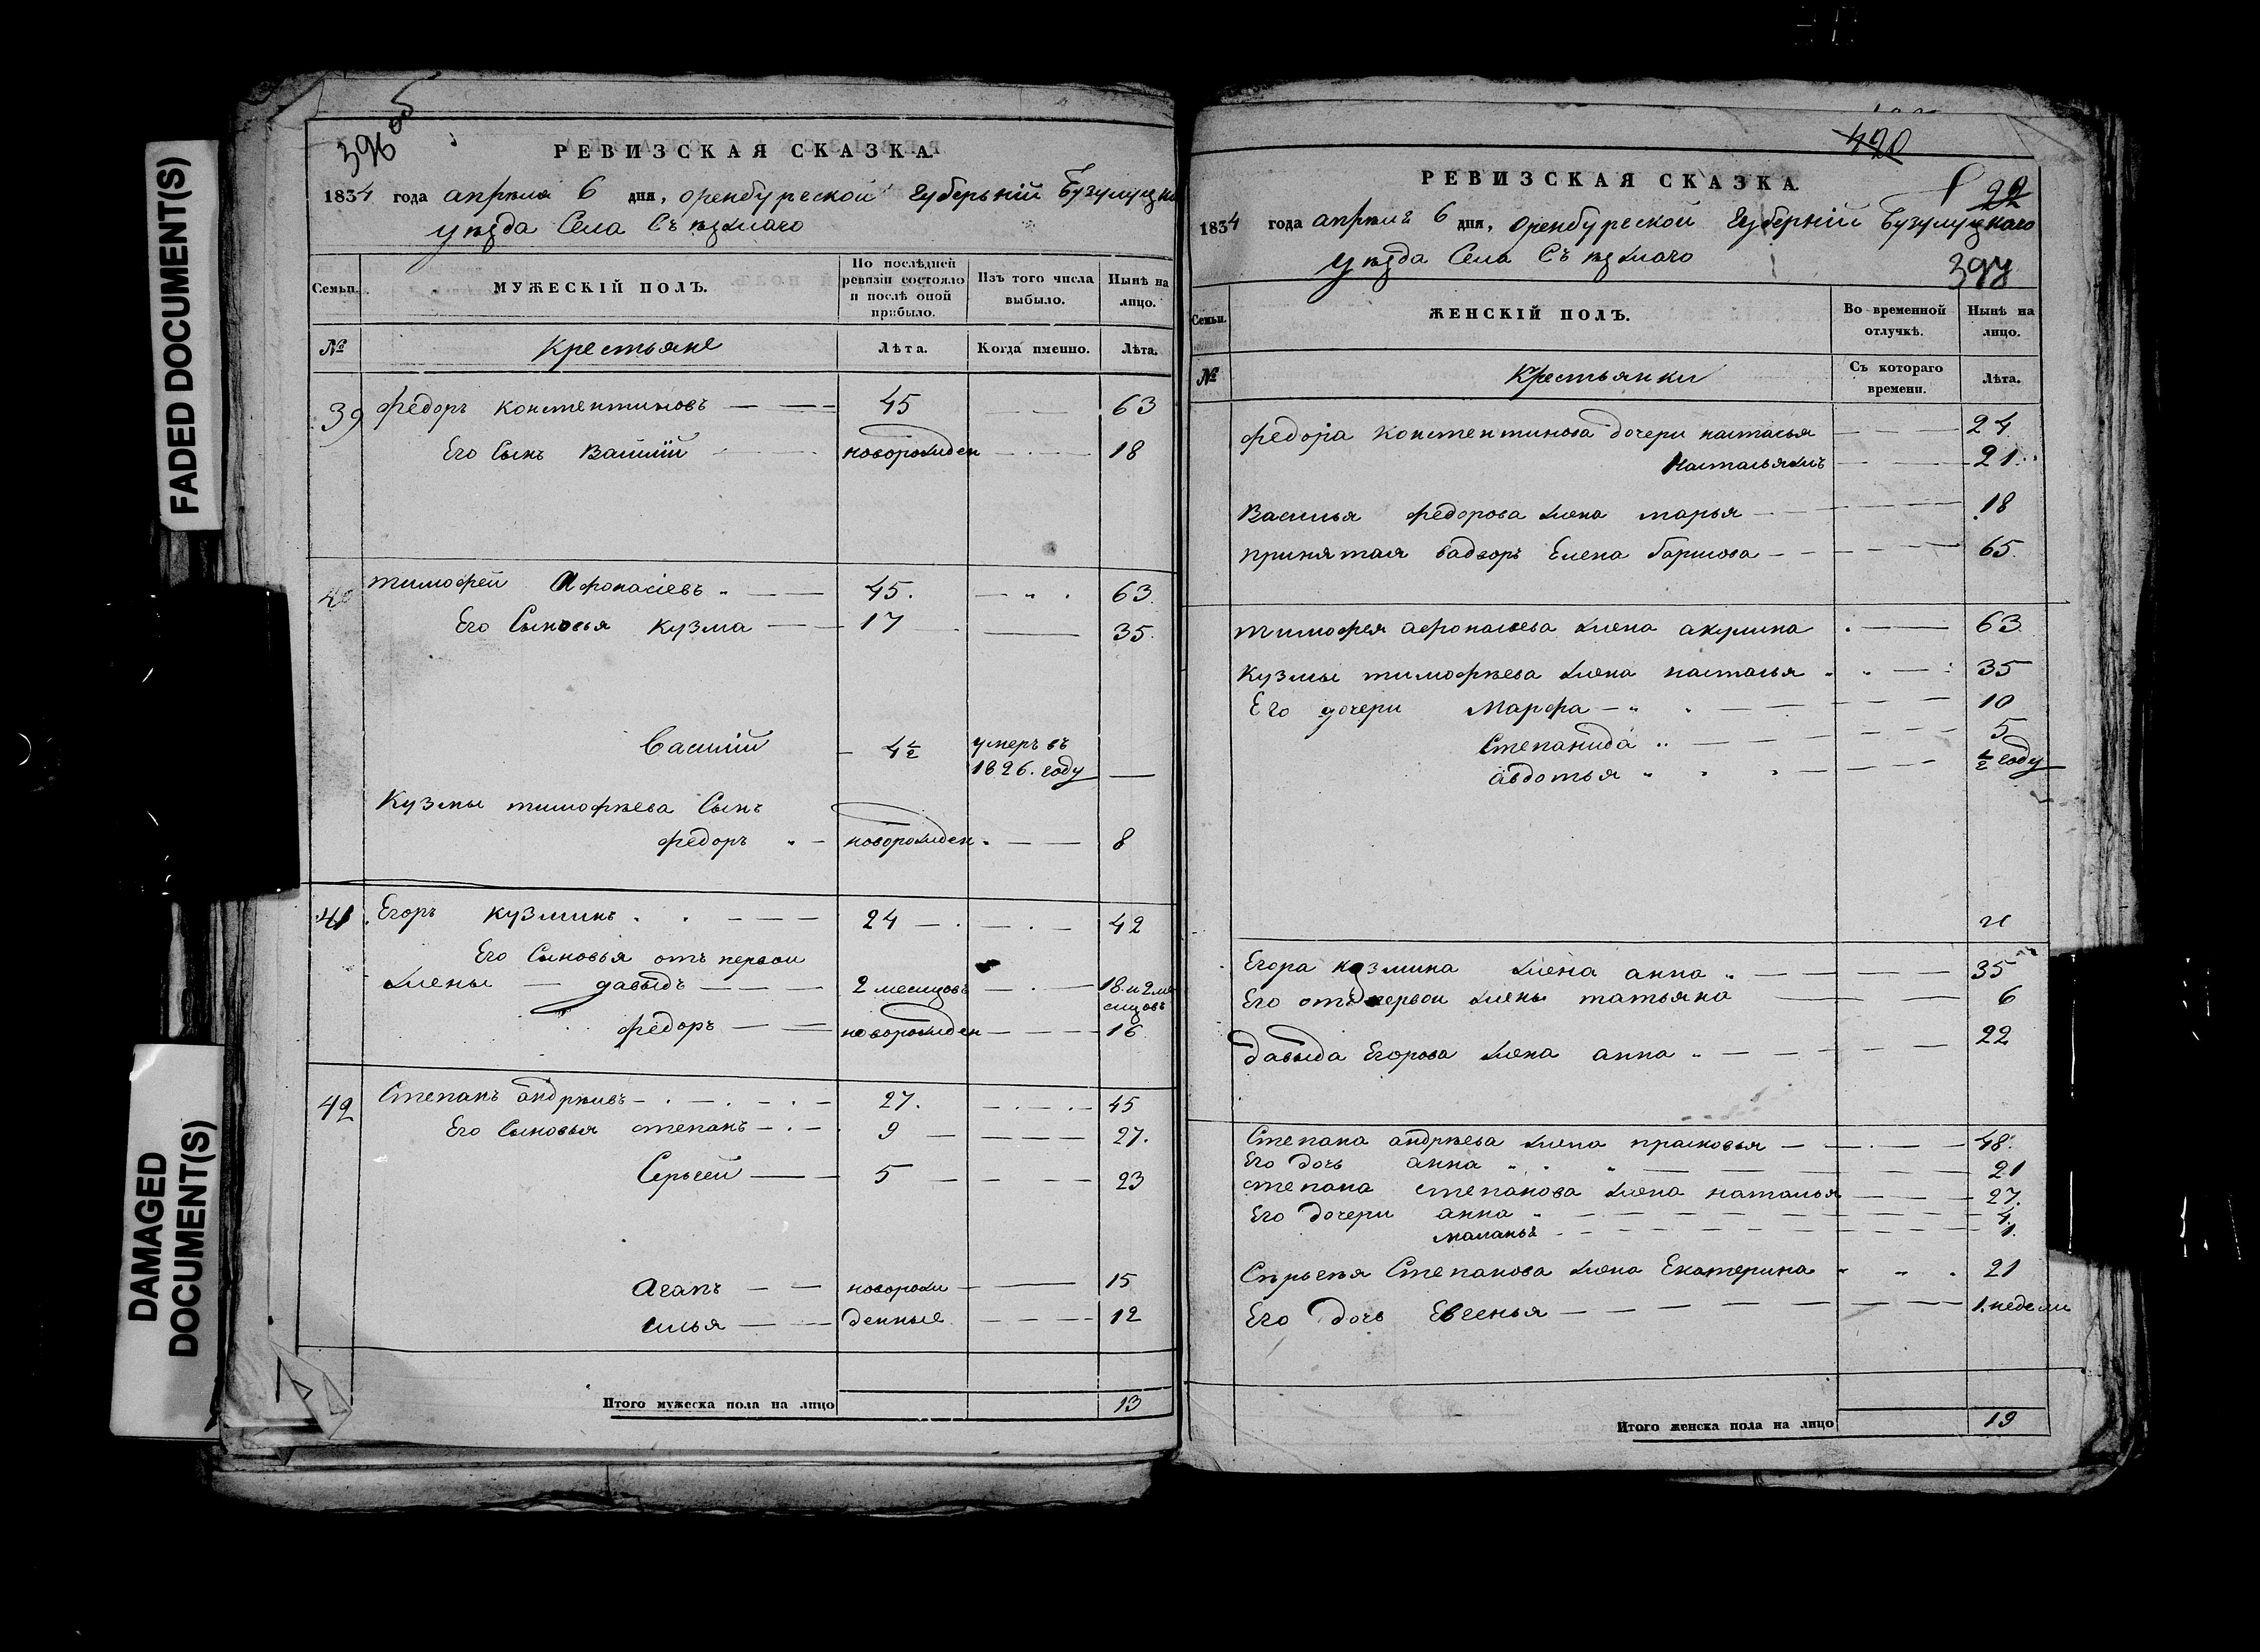 FADED DOCUMENT(S)
DAMAGED
DOCUMENT(S)
396 об
РЕВИЗСКАЯ СКАЗКА.
1834 года апреля 6 дня, оренбургской губерьній Бузулуцка
уѣзда Села Съѣзжаго
Семьи. МУЖЕСКІЙ ПОЛЪ. По послѣдней ревизіи состояло и послѣ оной прибыло. Изъ того числа выбыло. Нынѣ на лицо.
№ Крестьяне Лѣта. Когда именно. Лѣта.
39 федоръ констентиновъ 45 63
Его Сынъ Василій новорожден 18
40 тимофей Афонасіевъ 45. 63
Его Сыновья кузма 17 35.
Василій 4½ умеръ въ 1826. году
Кузмы тимофѣева Сынъ
федоръ новорожден 8
41 Егоръ кузминъ 24 42
Его Сыновья отъ первои
жены давыдъ 2 месяцовъ 18. и 2 месяцовъ
федоръ новорожден 16
42 Степанъ андрѣивъ 27. 45
Его Сыновья степанъ 9 27.
Сергей 5 23
Агапъ новорож 15
илья денные 12
Итого мужеска пола на лицо 13
420
РЕВИЗСКАЯ СКАЗКА.
22
1834 года апреля 6 дня, оренбургской Губерній Бузулуцкаго
уѣзда Села Съѣзжаго
397
Семьи. ЖЕНСКІЙ ПОЛЪ. Во временной отлучкѣ. Нынѣ на лицо.
№ Крестьянки Съ котораго времени. Лѣта.
федора констентинова дочери настасья 24
настасьяжъ 21
Василья федорова жена марья 18
принятая вадворъ Елена 65.
тимофея афонасьева жена акулина 63
Кузмы тимофѣева жена настасья 35
Его дочери Марфа 10
Степанида 5
авдотья ½ году
Егора кузмина жена анна 35
Его отъ первои жены татьяна 6
давыда Егорова жена анна 22
Степана андрѣева жена прасковья 48.
Его дочь анна 21
степана степанова жена наталья 27.
Его дочери анна 4.
маланья 1.
Сѣргея Степанова жена Екатерина 21
Его дочь Евгенья 1. недели
Итого женска пола на лицо 19